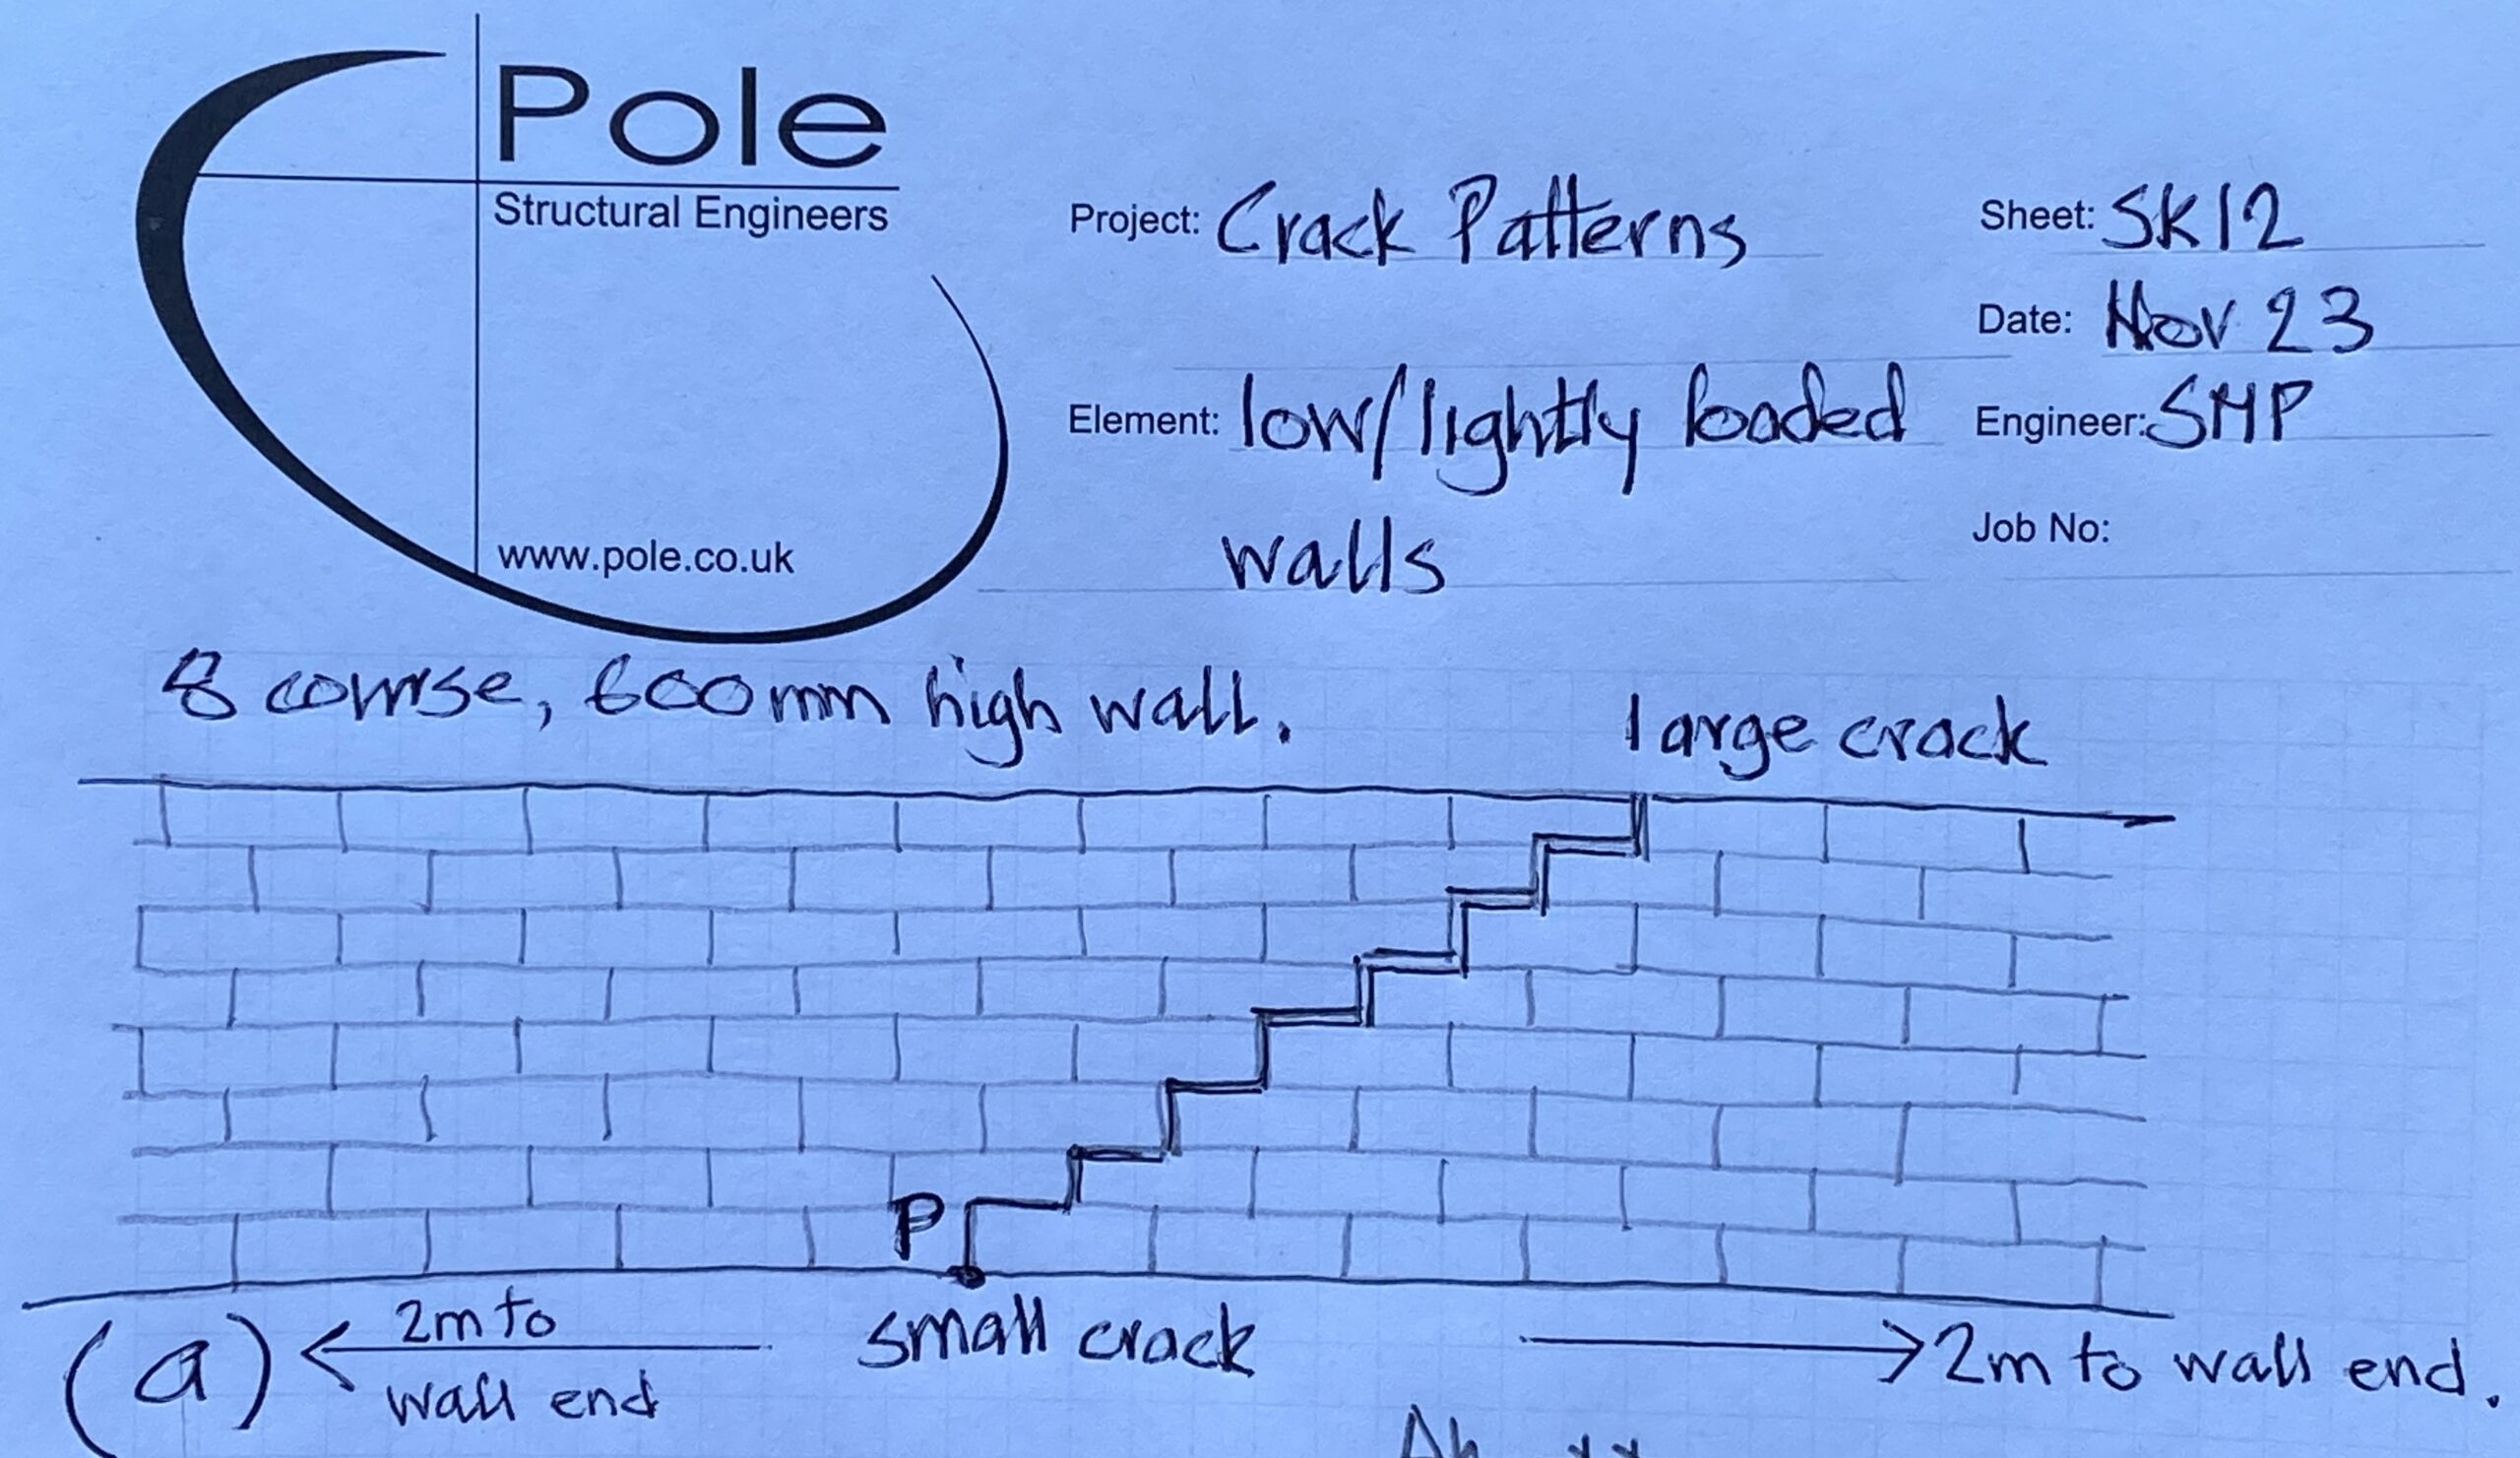 Pole
Structural Engineers
www.pole.co.uk
Project: Crack Patterns
Sheet: SK12
Date: Nov 23
Element: low/lightly loaded
walls
Engineer: SMP
Job No:
8 course, 600mm high wall.
large crack
P
(a)
2m to
wall end
small crack
2m to wall end.